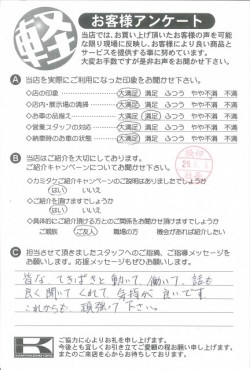 軽
お客様アンケート
当店では、お買い上げ頂いたお客様の声を可能
な限り現場に反映し、お客様により良い商品と
サービスを提供する事に努めています。
大変お手数ですが是非お声をお聞かせ下さい。
A 当店を実際にご利用になった印象をお聞かせ下さい。
◇店の印象 大満足 満足 ふつう やや不満 不満
◇店内・展示場の清掃 大満足 満足 ふつう やや不満 不満
◇車の品揃え 大満足 満足 ふつう やや不満 不満
◇営業スタッフの対応 大満足 満足 ふつう やや不満 不満
◇納車時のお車の状態 大満足 満足 ふつう やや不満 不満
B 当店はご紹介を大切にしております。
ご紹介キャンペーンについてお聞かせ下さい。
◇カミタケご紹介キャンペーンのご説明はありましたでしょうか
はい いいえ
◇ご紹介を頂けますでしょうか
はい いいえ
◇具体的にご紹介頂ける方とのご関係をお聞かせ頂けますでしょうか
ご親族 ご友人 職場の方 機会があれば紹介したい
C 担当させて頂きましたスタッフへのご指摘、ご指導メッセージを
お願いします。応援メッセージもぜひお願いします。
皆な てきぱきと動いて、働いて、話も
良く聞いてくれて、気持が良いです。
これからも 頑張って下さい。
K
ご協力に心よりお礼を申し上げます。
今後とも宜しくお引き立てご愛顧の程お願い申し上げます。
またのご来店を心からお待ちしております。